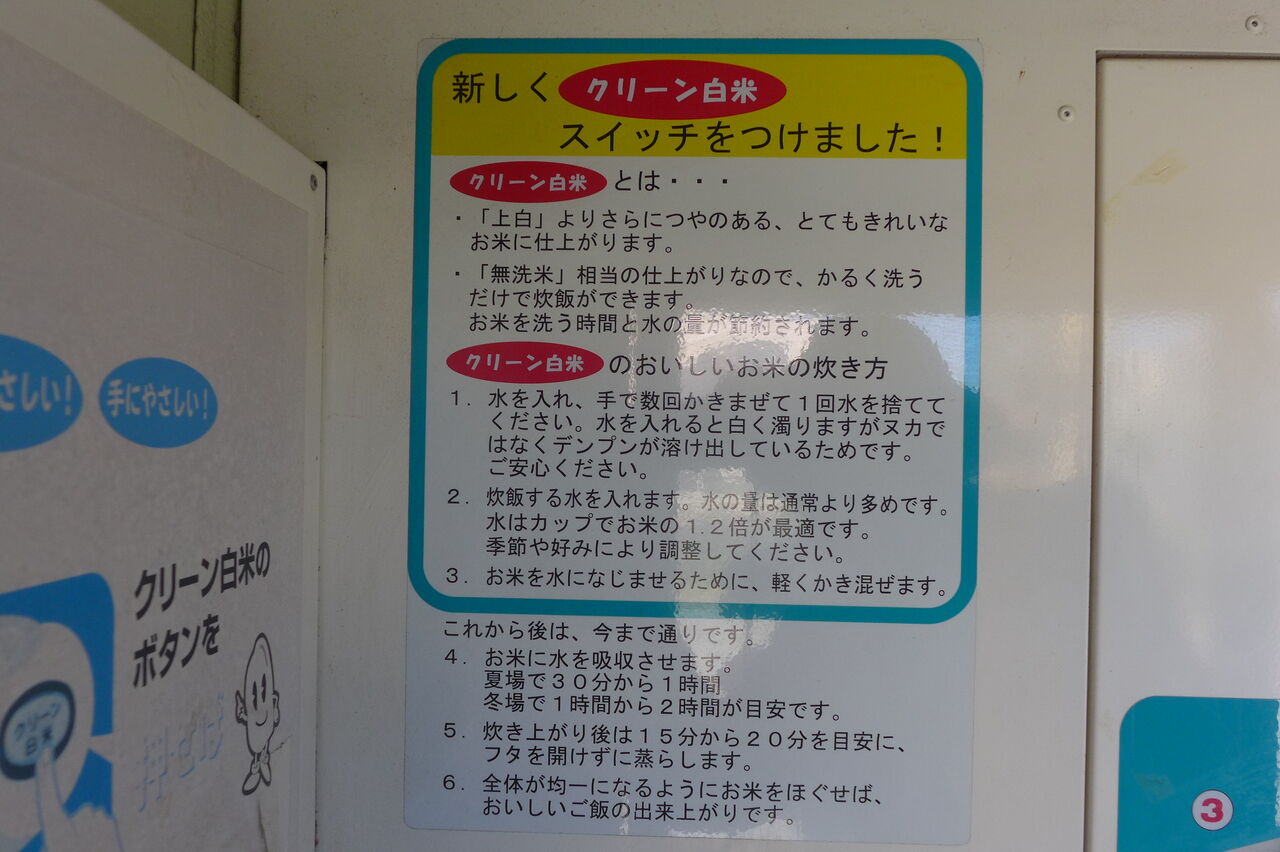 新しく クリーン白米
スイッチをつけました！
クリーン白米 とは・・・
・「上白」よりさらにつやのある、とてもきれいな
お米に仕上がります。
・「無洗米」相当の仕上がりなので、かるく洗う
だけで炊飯ができます。
お米を洗う時間と水の量が節約されます。
クリーン白米 のおいしいお米の炊き方
１．水を入れ、手で数回かきまぜて１回水を捨てて
ください。水を入れると白く濁りますがヌカで
はなくデンプンが溶け出しているためです。
ご安心ください。
２．炊飯する水を入れます。水の量は通常より多めです。
水はカップでお米の１.２倍が最適です。
季節や好みにより調整してください。
３．お米を水になじませるために、軽くかき混ぜます。
これから後は、今まで通りです。
４．お米に水を吸収させます。
夏場で３０分から１時間
冬場で１時間から２時間が目安です。
５．炊き上がり後は１５分から２０分を目安に、
フタを開けずに蒸らします。
６．全体が均一になるようにお米をほぐせば、
おいしいご飯の出来上がりです。
さしい！
手にやさしい！
クリーン白米の
ボタンを
押せば
クリーン
白米
3